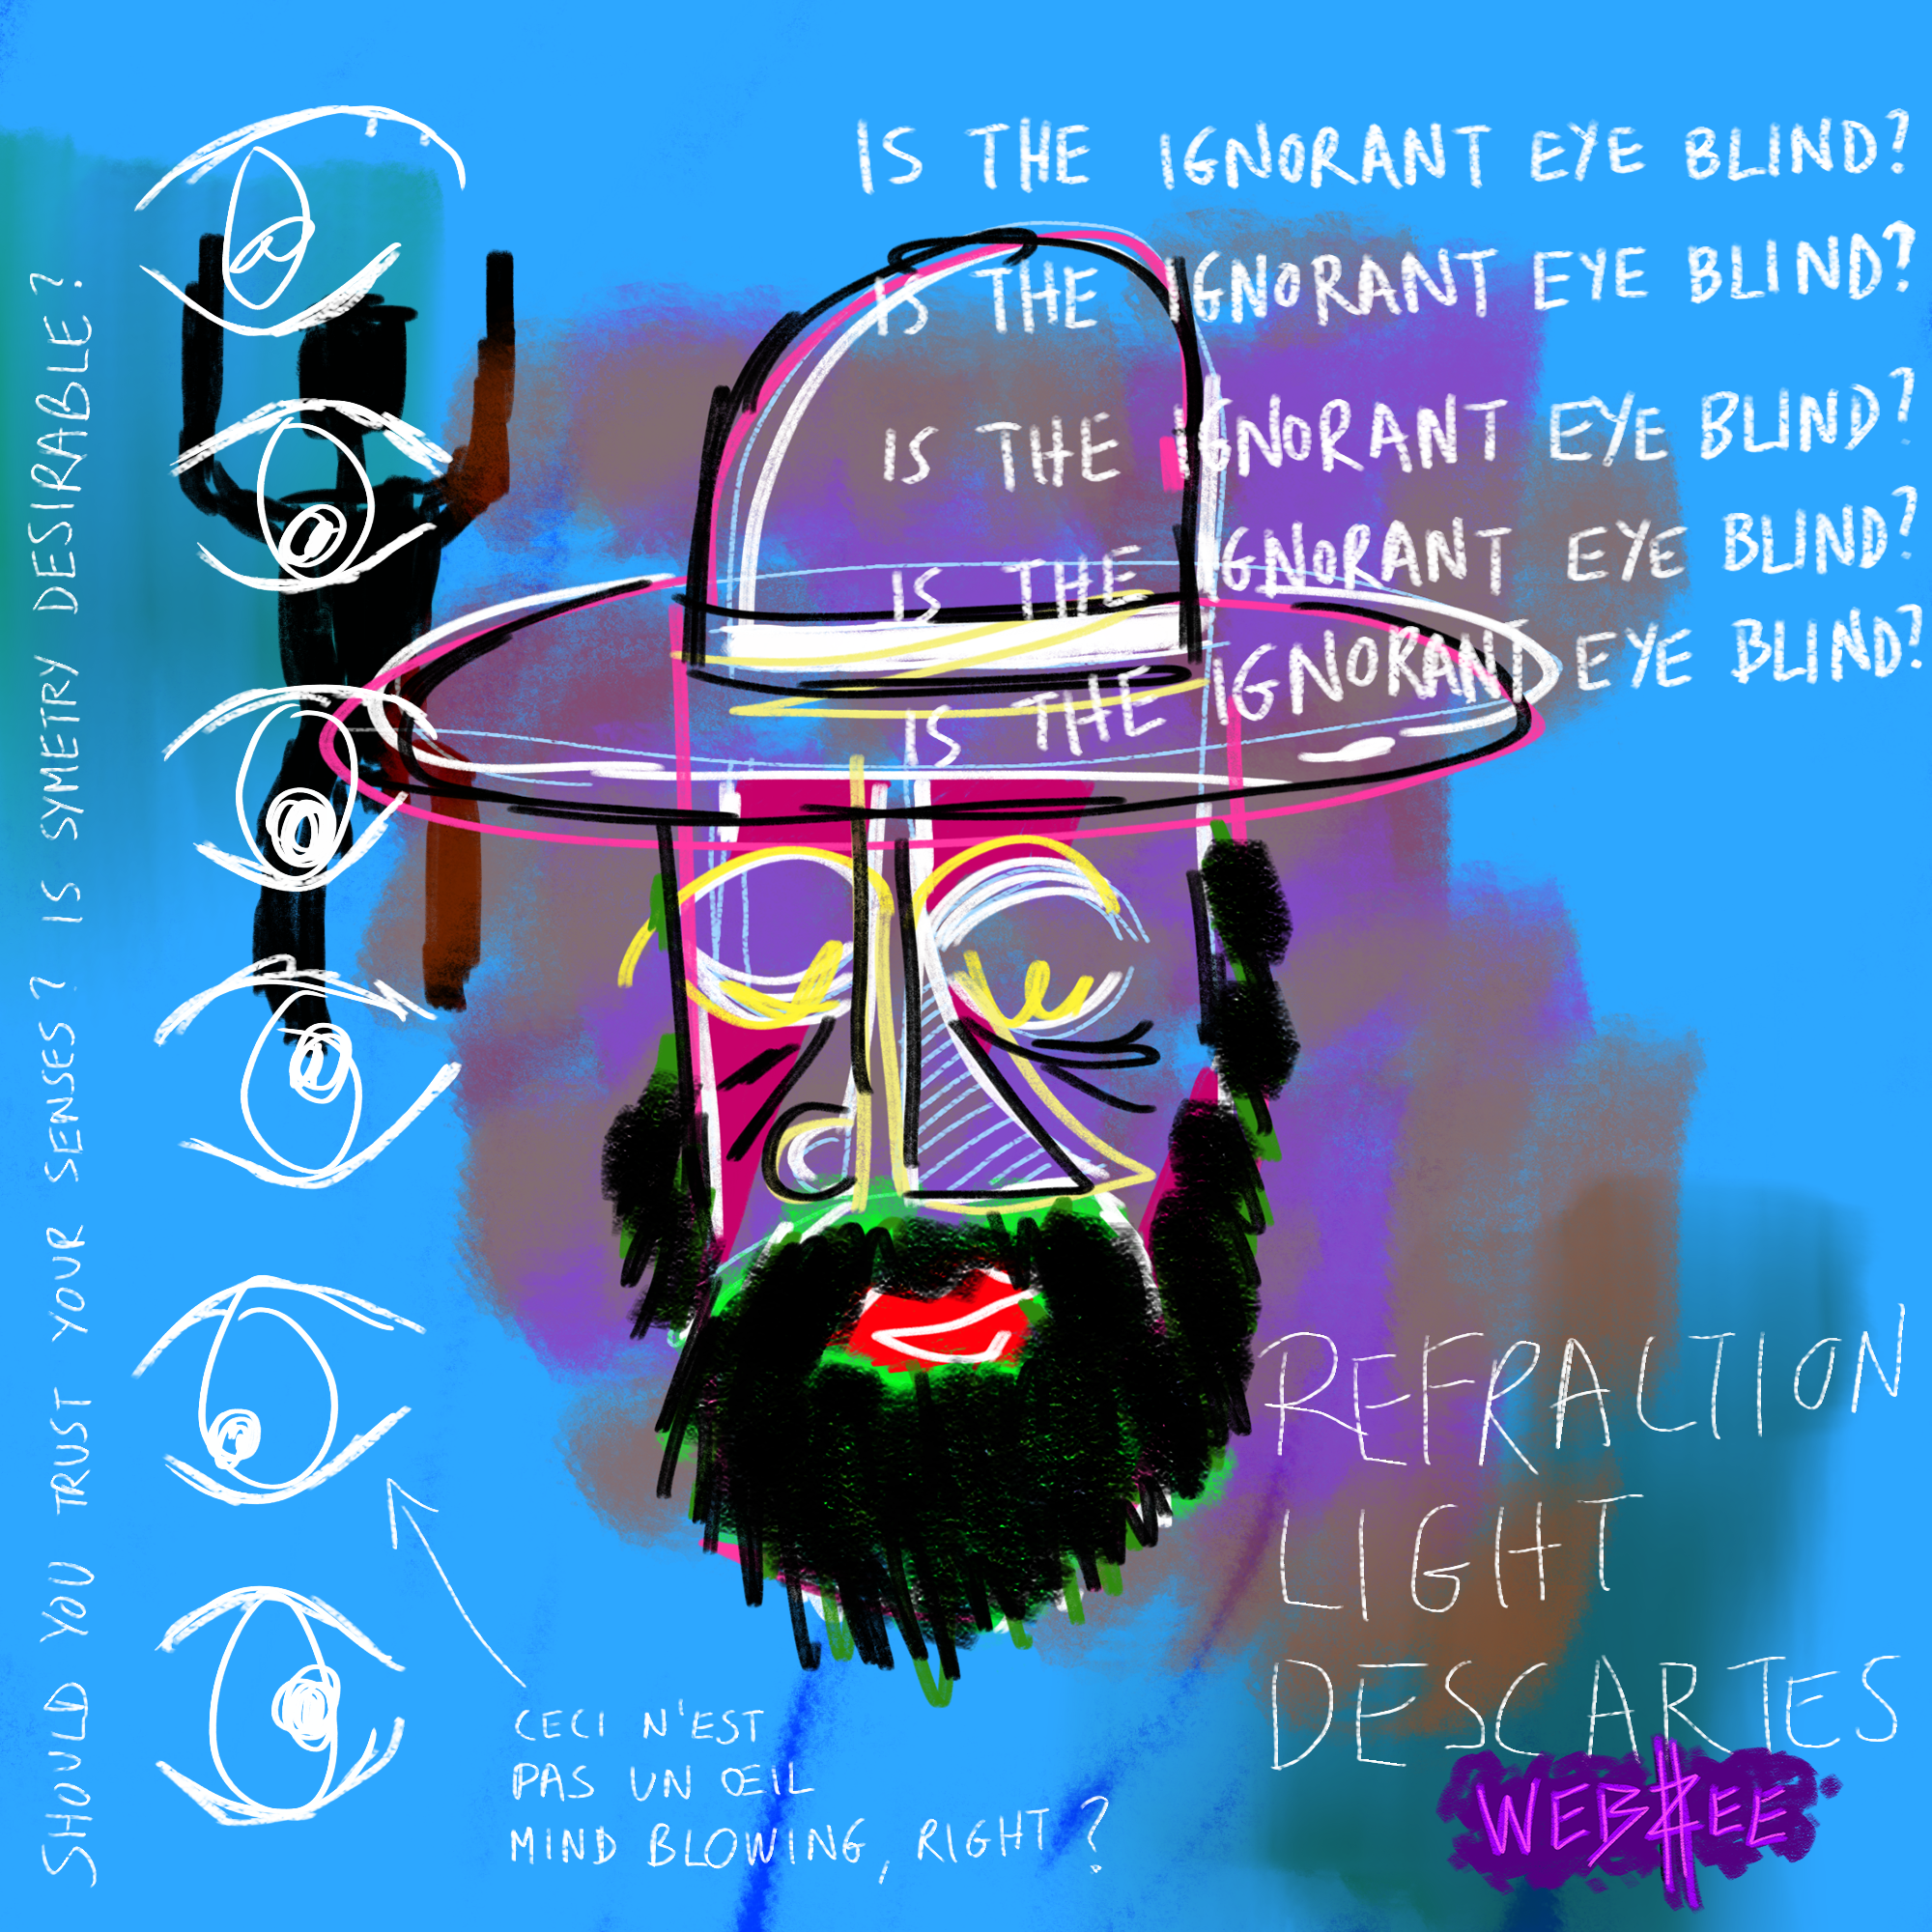 IS THE IGNORANT EYE BLIND?
IS THE IGNORANT EYE BLIND?
IS THE IGNORANT EYE BLIND?
IS THE IGNORANT EYE BLIND?
IS THE IGNORANT EYE BLIND?
SHOULD YOU TRUST YOUR SENSES? IS SYMETRY DESIRABLE?
REFRACTION
LIGHT
DESCARTES
CECI N'EST
PAS UN ŒIL
MIND BLOWING, RIGHT?